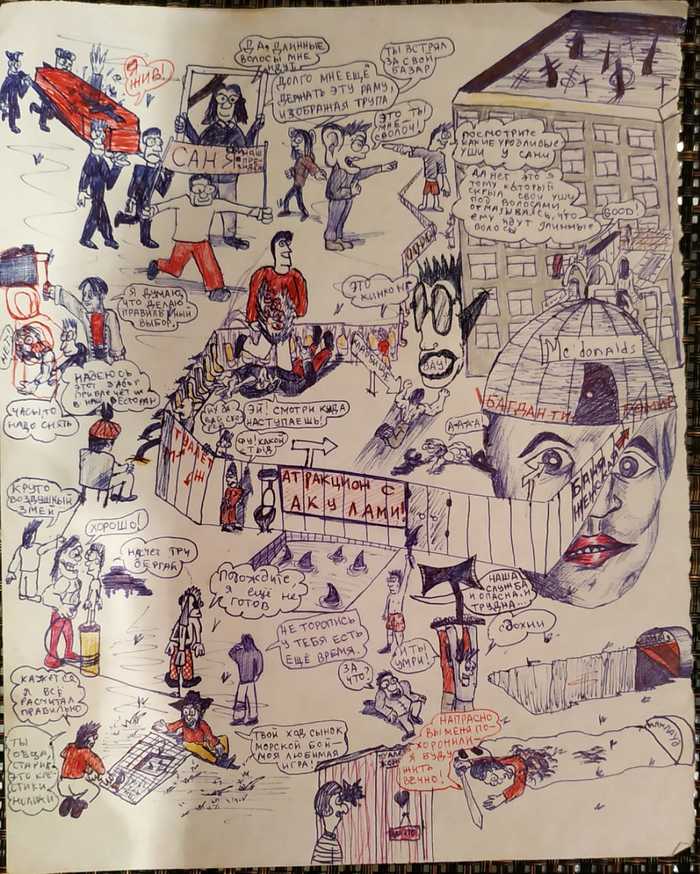 Я
ЖИВ!
ДА, ДЛИННЫЕ
ВОЛОСЫ МНЕ
ИДУТ
ДОЛГО МНЕ ЕЩЁ
ДЕРЖАТЬ ЭТУ РАМУ,
ИЗОБРАЖАЯ ТРУПА
ТЫ ВСТРЯЛ
ЗА СВОЙ
БАЗАР
ЭТО ТЫ
МНЕ
СВОЛОЧ!
САНЯ
ПОСМОТРИТЕ
КАКИЕ УРОДЛИВЫЕ
УШИ У САНИ
ДА НЕТ ЭТО Я
ТОМУ КОТОРЫЙ
СКРЫЛ СВОИ УШИ
ПОД ВОЛОСАМИ
ОТМАЗЫВАЯСЬ, ЧТО
ЕМУ ИДУТ ДЛИННЫЕ
ВОЛОСЫ
GOOD!
Я ДУМАЮ,
ЧТО ДЕЛАЮ
ПРАВИЛЬНЫЙ
ВЫБОР.
ЭТО
КИНКОНГ
ВАУ
Mc.donalds
НАДЕЮСЬ
ЭТОТ ЗАБОР
ПРИВЛЕЧЁТ ИХ
В НАШ РЕСТОРАН
ЧАСЫ ТО
НАДО СНЯТЬ
ЭЙ! СМОТРИ КУДА
НАСТУПАЕШЬ!
ФУ! КАКОЙ
СТЫД
А-А-А-А
ТУАЛЕТ
М Ж
АТРАКЦИОН С
АКУЛАМИ!
БАНЯ
ЖЕНСКАЯ
КРУТО
ВОЗДУШНЫЙ
ЗМЕЙ
ХОРОШО!
НАСЧЕТ ТРИ
ДЁРГАЙ
ПОДОЖДИТЕ
Я ЕЩЁ НЕ
ГОТОВ
НЕ ТОРОПИСЬ
У ТЕБЯ ЕСТЬ
ЕЩЁ ВРЕМЯ.
НАША
СЛУЖБА
И ОПАСНА И
ТРУДНА...
СДОХНИ
И ТЫ
УМРИ!
ЗА
ЧТО?
КАЖЕТСЯ
Я ВСЁ
РАСЧИТАЛ
ПРАВИЛЬНО
ТЫ
ОБЩА,
СТАРИК
ЭТО КРЕ-
СТИКИ
НОЛИКИ
ТВОЙ ХОД СЫНОК
МОРСКОЙ БОЙ -
МОЯ ЛЮБИМАЯ
ИГРА!
НАПРАСНО
ВЫ МЕНЯ ПО-
ХОРОНИЛИ
Я БУДУ
ЖИТЬ
ВЕЧНО!
МАКЛАУД